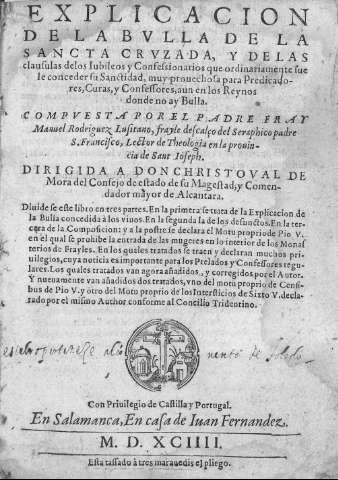 EXPLICACION
DE LA BVLLA DE LA
SANCTA CRVZADA, Y DELAS
clausulas delos Iubileos y Confessionarios que ordinariamente sue
le conceder su Sanctidad, muy prouechosa para Predicado-
res, Curas, y Confessores, aun en los Reynos
donde no ay Bulla.
COMPVESTA POR EL PADRE FRAY
Manuel Rodriguez Lusitano, frayle descalço del Seraphico padre
S. Francisco, Lector de Theologia en la prouin-
cia de Sant Ioseph.
DIRIGIDA A DON CHRISTOVAL DE
Mora del Consejo de estado de su Magestad, y Comen-
dador mayor de Alcantara.
Diuide se este libro en tres partes. En la primera se trata de la Explicacion de
la Bulla concedida a los viuos. En la segunda la de los defunctos. En la ter-
cera de la Composicion: y a la postre se declara el Motu proprio de Pio V.
en el qual se prohibe la entrada de las mugeres en lo interior de los Monas
terios de Frayles. En los quales tratados se traen y declaran muchos pri-
uilegios, cuya noticia es importante para los Prelados y Confessores regu-
lares. Los quales tratados van agora añadidos, y corregidos por el Autor.
Y nueuamente van añadidos dos tratados, vno del motu proprio de Censi-
bus de Pio V. y otro del Motu proprio de los Intersticios de Sixto V. decla-
rado por el mismo Author conforme al Concilio Tridentino.
de
Con Priuilegio de Castilla y Portugal.
En Salamanca, En casa de Iuan Fernandez.
M. D. XCIIII.
Esta tassado à tres marauedis el pliego.